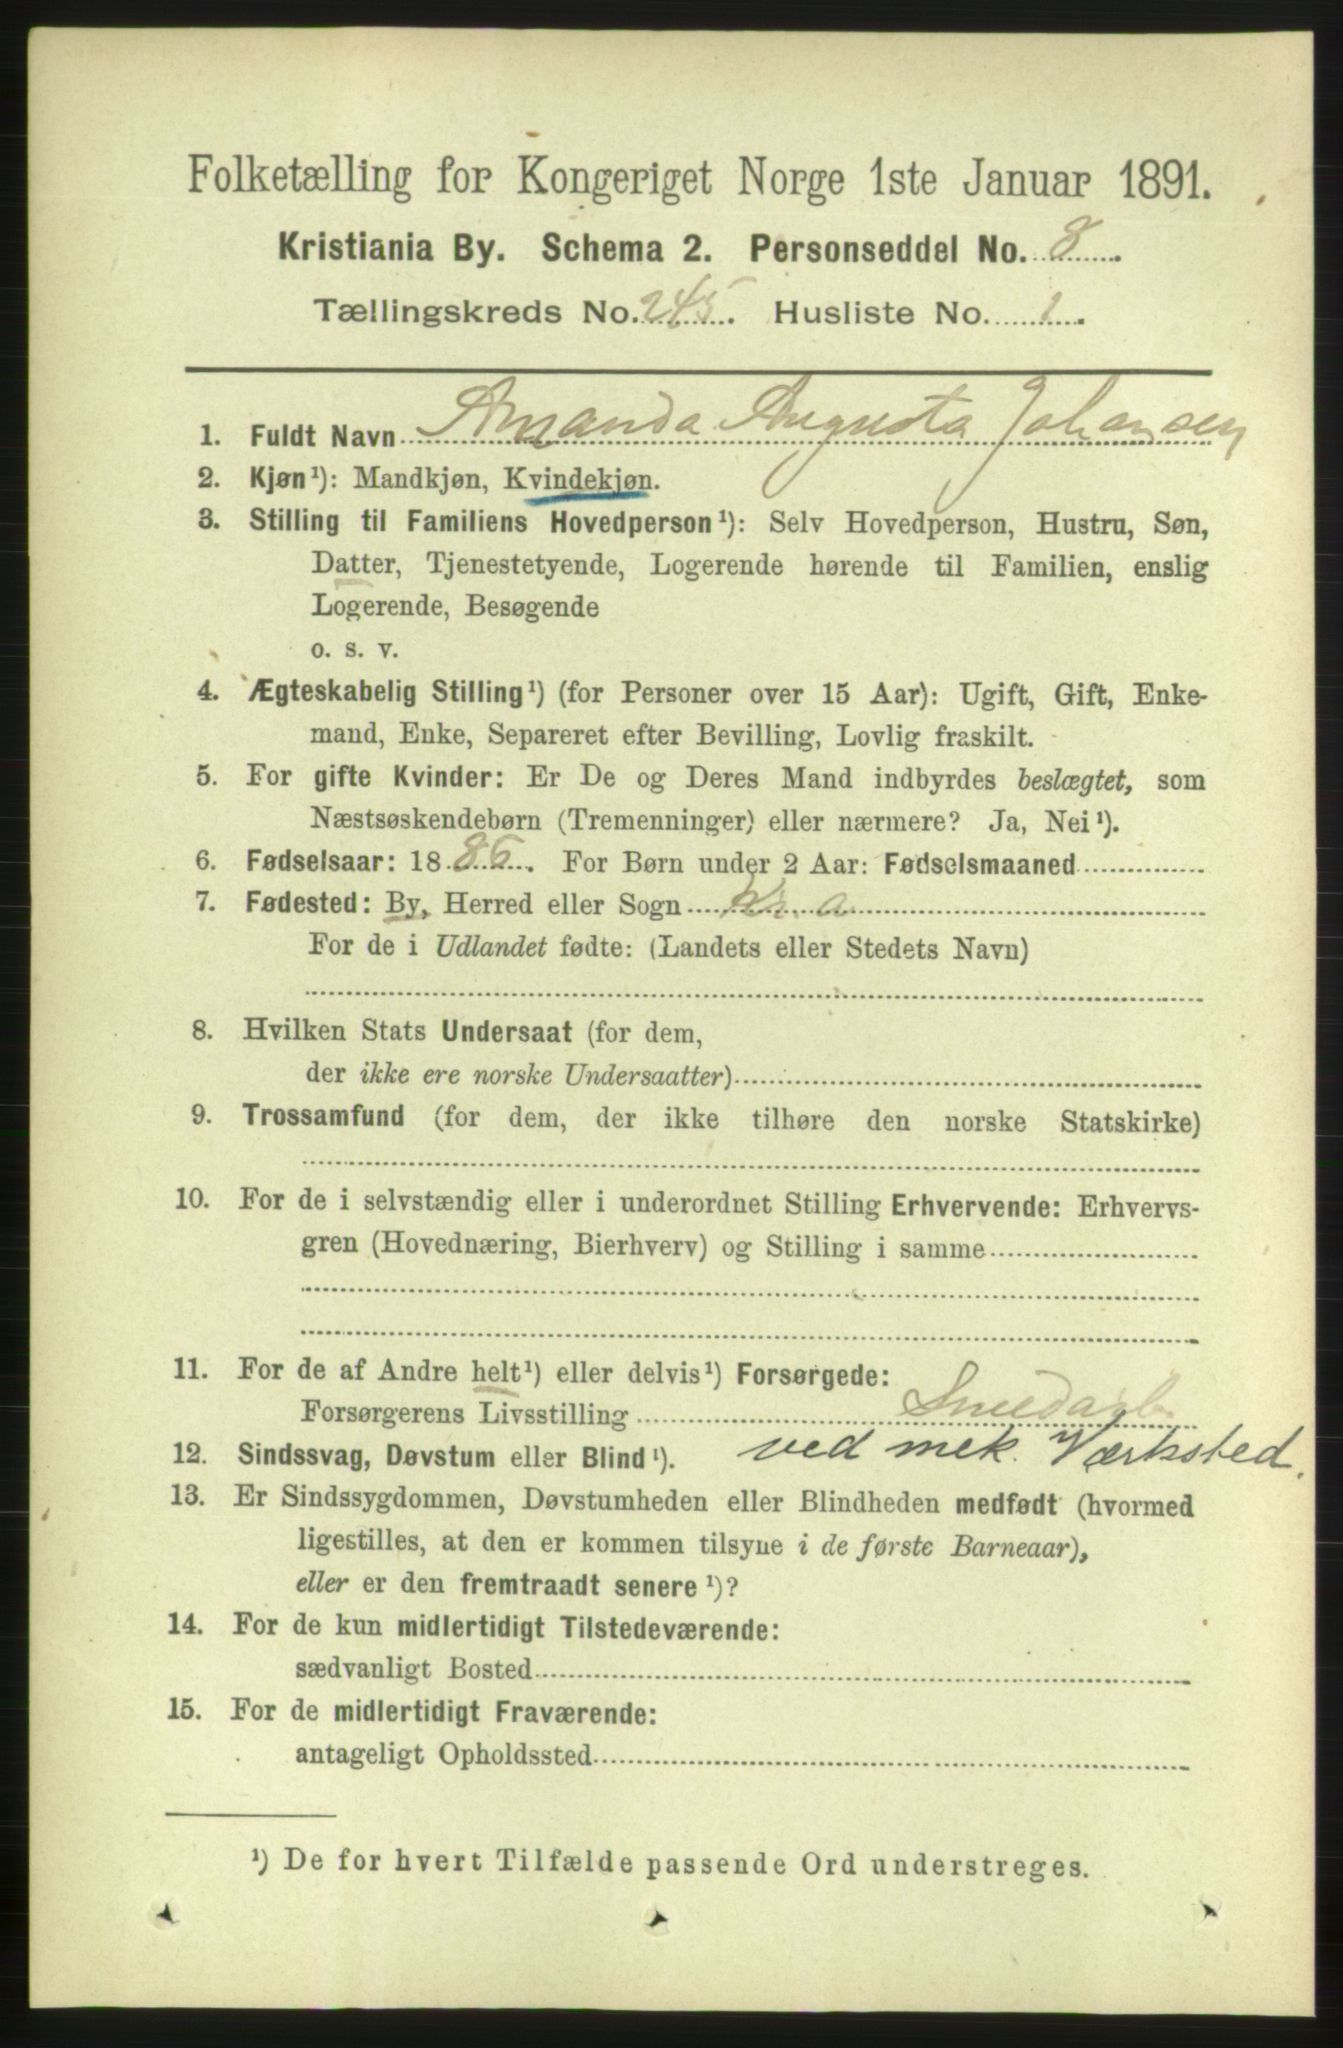 Folketælling for Kongeriget Norge 1ste Januar 1891.
Kristiania By. Schema 2. Personseddel No. 8
Tællingskreds No. 245. Husliste No. 1.
1. Fuldt Navn Amanda Augusta Johansen
2. Kjøn¹): Mandkjøn, Kvindekjøn.
3. Stilling til Familiens Hovedperson¹): Selv Hovedperson, Hustru, Søn,
Datter, Tjenestetyende, Logerende hørende til Familien, enslig
Logerende, Besøgende
o. s. v.
4. Ægteskabelig Stilling¹) (for Personer over 15 Aar): Ugift, Gift, Enke-
mand, Enke, Separeret efter Bevilling, Lovlig fraskilt.
5. For gifte Kvinder: Er De og Deres Mand indbyrdes beslægtet, som
Næstsøskendebørn (Tremenninger) eller nærmere? Ja, Nei¹).
6. Fødselsaar: 1886. For Børn under 2 Aar: Fødselsmaaned
7. Fødested: By, Herred eller Sogn Kr. a
For de i Udlandet fødte: (Landets eller Stedets Navn)
8. Hvilken Stats Undersaat (for dem,
der ikke ere norske Undersaatter)
9. Trossamfund (for dem, der ikke tilhøre den norske Statskirke)
10. For de i selvstændig eller i underordnet Stilling Erhvervende: Erhvervs-
gren (Hovednæring, Bierhverv) og Stilling i samme
11. For de af Andre helt¹) eller delvis¹) Forsørgede:
Forsørgerens Livsstilling Smedarb
12. Sindssvag, Døvstum eller Blind¹). ved mek. Værksted.
13. Er Sindssygdommen, Døvstumheden eller Blindheden medfødt (hvormed
ligestilles, at den er kommen tilsyne i de første Barneaar),
eller er den fremtraadt senere¹)?
14. For de kun midlertidigt Tilstedeværende:
sædvanligt Bosted
15. For de midlertidigt Fraværende:
antageligt Opholdssted
¹) De for hvert Tilfælde passende Ord understreges.